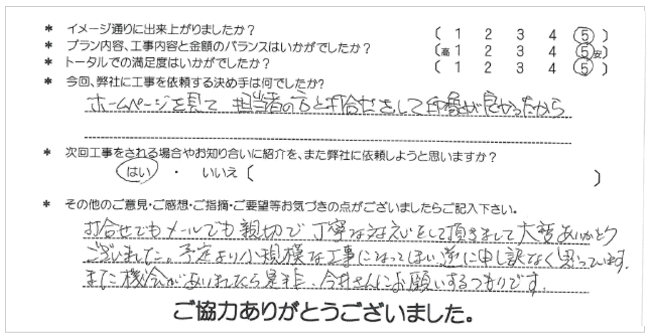 * イメージ通りに出来上がりましたか? ( 1 2 3 4 5 )
* プラン内容、工事内容と金額のバランスはいかがでしたか? (高1 2 3 4 5安)
* トータルでの満足度はいかがでしたか? ( 1 2 3 4 5 )
* 今回、弊社に工事を依頼する決め手は何でしたか?
ホームページを見て 担当者の方と打合せをして印象が良かったから
* 次回工事をされる場合やお知り合いに紹介を、また弊社に依頼しようと思いますか?
はい ・ いいえ ( )
* その他のご意見・ご感想・ご指摘・ご要望等お気づきの点がございましたらご記入下さい。
打合せでもメールでも親切で丁寧な対応をして頂きまして大変ありがとう
ございました。予定より小規模な工事になってしまい逆に申し訳なく思っています。
また機会がありましたら是非、今井さんにお願いするつもりです。
ご協力ありがとうございました。